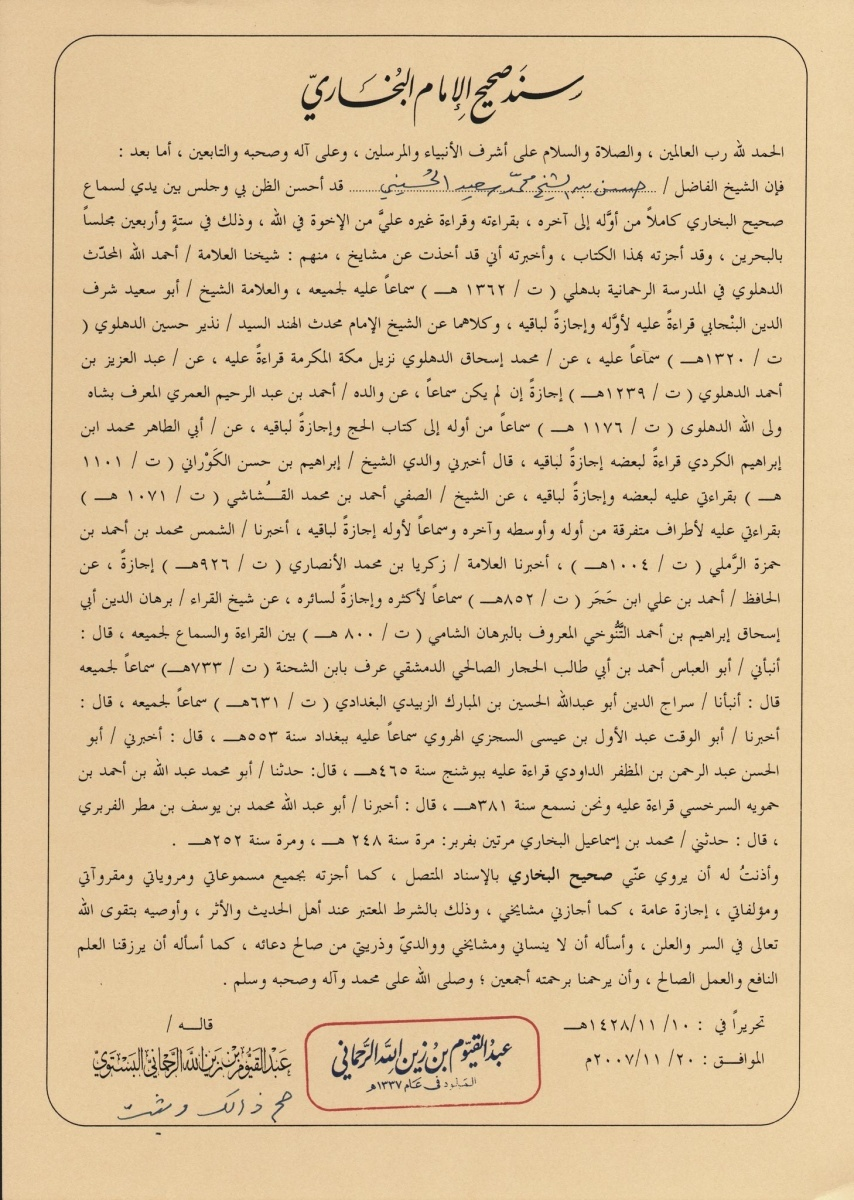 سند صحيح الإمام البُخاريّ
الحمد لله رب العالمين ، والصلاة والسلام على أشرف الأنبياء والمرسلين ، وعلى آله وصحبه والتابعين ، أما بعد :
فإن الشيخ الفاضل / الشيخ محمد الحسيني قد أحسن الظن بي وجلس بين يدي لسماع
صحيح البخاري كاملاً من أوَّله إلى آخره ، بقراءته وقراءة غيره عليَّ من الإخوة في الله ، وذلك في ستةٍ وأربعين مجلساً
بالبحرين ، وقد أجزته بهذا الكتاب ، وأخبرته أني قد أخذت عن مشايخ ، منهم : شيخنا العلامة / أحمد الله المحدّث
الدهلوي في المدرسة الرحمانية بدهلي ( ت / ١٣٦٢ هـ ) سماعاً عليه لجميعه ، والعلامة الشيخ / أبو سعيد شرف
الدين البنْجابي قراءةً عليه لأوَّله وإجازةً لباقيه ، وكلاهما عن الشيخ الإمام محدث الهند السيد / نذير حسين الدهلوي (
ت / ١٣٢٠هـ ) سماعاً عليه ، عن / محمد إسحاق الدهلوي نزيل مكة المكرمة قراءةً عليه ، عن / عبد العزيز بن
أحمد الدهلوي ( ت / ١٢٣٩هـ ) إجازةً إن لم يكن سماعاً ، عن والده / أحمد بن عبد الرحيم العمري المعرف بشاه
ولى الله الدهلوى ( ت / ١١٧٦ هـ ) سماعاً من أوله إلى كتاب الحج وإجازةً لباقيه ، عن / أبي الطاهر محمد ابن
إبراهيم الكردي قراءةً لبعضه إجازةً لباقيه ، قال أخبرني والدي الشيخ / إبراهيم بن حسن الكَوْراني ( ت / ١١٠١
هـ ) بقراءتي عليه لبعضه وإجازةً لباقيه ، عن الشيخ / الصفي أحمد بن محمد القُشاشي ( ت / ١٠٧١ هـ )
بقراءتي عليه لأطراف متفرقة من أوله وأوسطه وآخره وسماعاً لأوله إجازةً لباقيه ، أخبرنا / الشمس محمد بن أحمد بن
حمزة الرَّملي ( ت / ١٠٠٤هـ ) ، أخبرنا العلامة / زكريا بن محمد الأنصاري ( ت / ٩٢٦هـ ) إجازةً ، عن
الحافظ / أحمد بن علي ابن حَجَر ( ت / ٨٥٢هـ ) سماعاً لأكثره وإجازةً لسائره ، عن شيخ القراء / برهان الدين أبي
إسحاق إبراهيم بن أحمد التَّنُوخي المعروف بالبرهان الشامي ( ت / ٨٠٠ هـ ) بين القراءة والسماع لجميعه ، قال :
أنبأني / أبو العباس أحمد بن أبي طالب الحجار الصالحي الدمشقي عرف بابن الشحنة ( ت / ٧٣٣هـ) سماعاً لجميعه
قال : أنبأنا / سراج الدين أبو عبدالله الحسين بن المبارك الزبيدي البغدادي ( ت / ٦٣١هـ ) سماعاً لجميعه ، قال :
أخبرنا / أبو الوقت عبد الأول بن عيسى السجزي الهروي سماعاً عليه ببغداد سنة ٥٥٣هـ ، قال : أخبرني / أبو
الحسن عبد الرحمن بن المظفر الداودي قراءة عليه ببوشنج سنة ٤٦٥هـ ، قال: حدثنا / أبو محمد عبد الله بن أحمد بن
حمويه السرخسي قراءة عليه ونحن نسمع سنة ٣٨١هـ ، قال : أخبرنا / أبو عبد الله محمد بن يوسف بن مطر الفربري
، قال : حدثني / محمد بن إسماعيل البخاري مرتين بفربر: مرة سنة ٢٤٨ هـ ، ومرة سنة ٢٥٢هـ .
وأذنتُ له أن يروي عنّي صحيح البخاري بالإسناد المتصل ، كما أجزته بجميع مسموعاتي ومروياتي ومقروآتي
ومؤلفاتي ، إجازة عامة ، كما أجازني مشايخي ، وذلك بالشرط المعتبر عند أهل الحديث والأثر ، وأوصيه بتقوى الله
تعالى في السر والعلن ، وأسأله أن لا ينساني ومشايخي ووالديّ وذريتي من صالح دعائه ، كما أسأله أن يرزقنا العلم
النافع والعمل الصالح ، وأن يرحمنا برحمته أجمعين ؛ وصلى الله على محمد وآله وصحبه وسلم .
تحريراً في : ١٠ /١٤٢٨/١١هـ
قاله /
الموافق : ٢٠ /٢٠٠٧/١١م
عبد القيّوم بن زين الله الرَّحماني
المولود في عام ١٣٣٧هـ
عبد القيوم بن زين الله الرحماني البستوي
صح ذالك